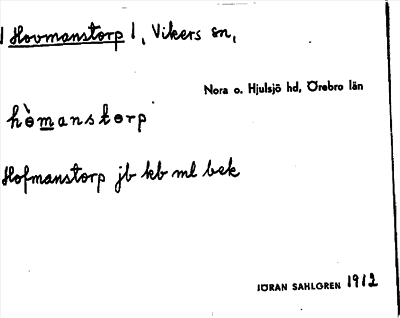 Hovmanstorp |, Vikers sn,
Nora o. Hjulsjö hd, Örebro län
hòmanstorp
Hofmanstorp jb kb ml bek
JÖRAN SAHLGREN 1912